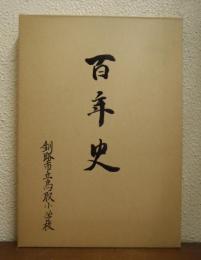 百年史
釧路市立鳥取小学校